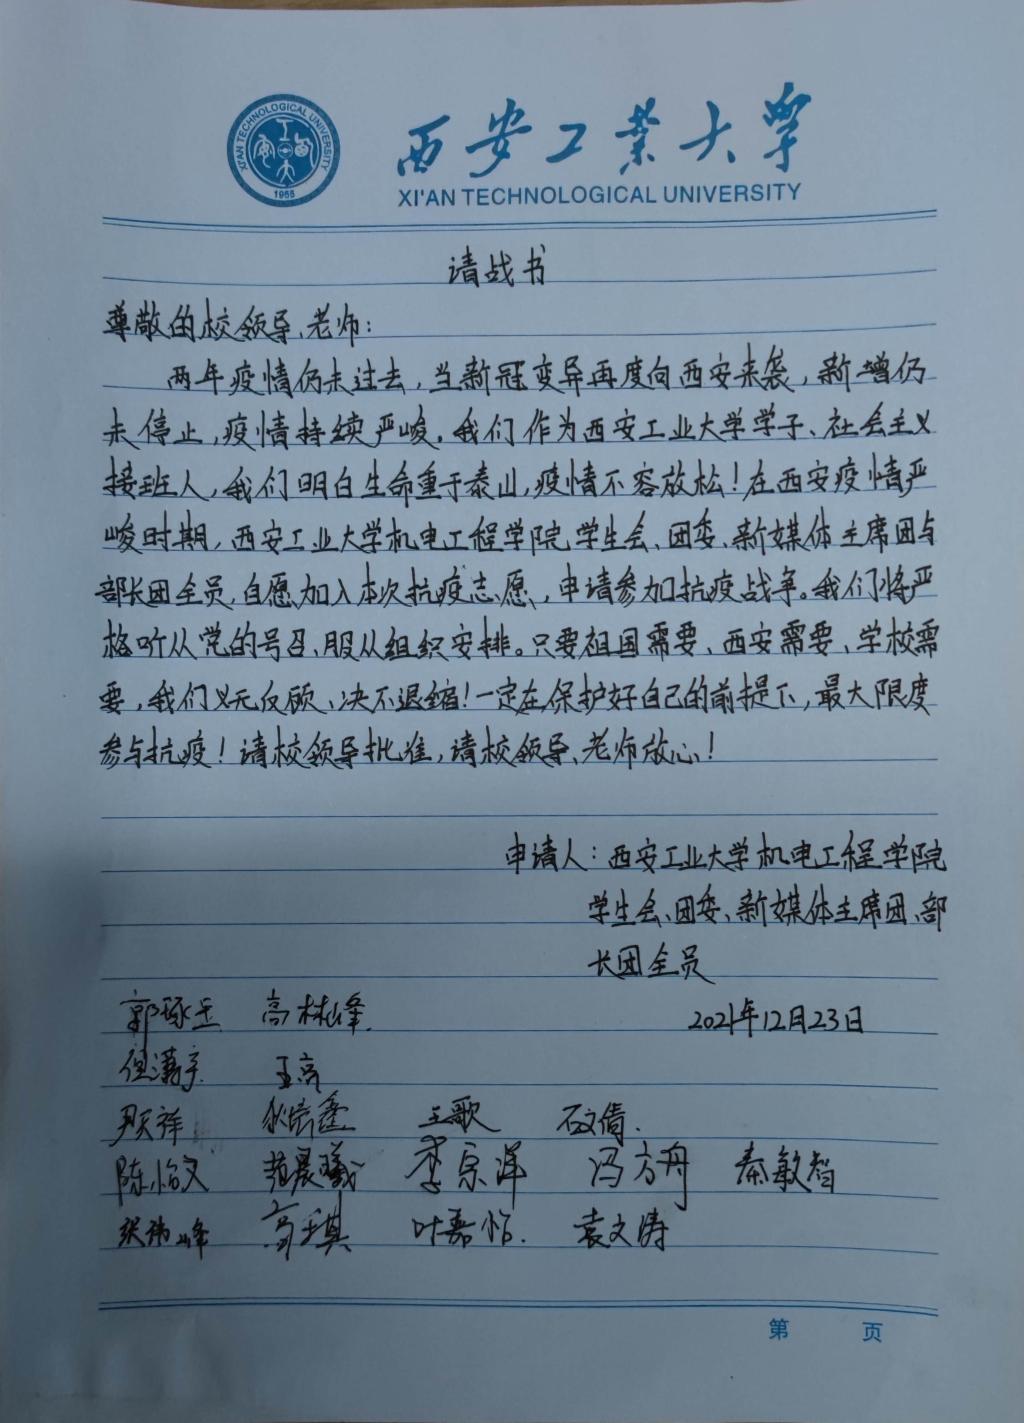 XI'AN TECHNOLOGICAL UNIVERSITY
1955
西安工业大学
XI'AN TECHNOLOGICAL UNIVERSITY
请战书
尊敬的校领导、老师：
两年疫情仍未过去，当新冠变异再度向西安来袭，新增仍
未停止，疫情持续严峻。我们作为西安工业大学学子、社会主义
接班人，我们明白生命重于泰山，疫情不容放松！在西安疫情严
峻时期，西安工业大学机电工程学院学生会、团委、新媒体主席团与
部长团全员，自愿加入本次抗疫志愿，申请参加抗疫战争。我们将严
格听从党的号召、服从组织安排。只要祖国需要、西安需要、学校需
要，我们义无反顾、决不退缩！一定在保护好自己的前提下，最大限度
参与抗疫！请校领导批准，请校领导、老师放心！
申请人：西安工业大学机电工程学院
学生会、团委、新媒体主席团、部
长团全员
郭琢玉 高林峰
2021年12月23日
王亮
尹天祥 王歌 石文倩
陈怡文 范晨曦 李宗洋 冯方舟 秦敏智
张祎峰 高天琪 叶嘉怡 袁文涛
第 页